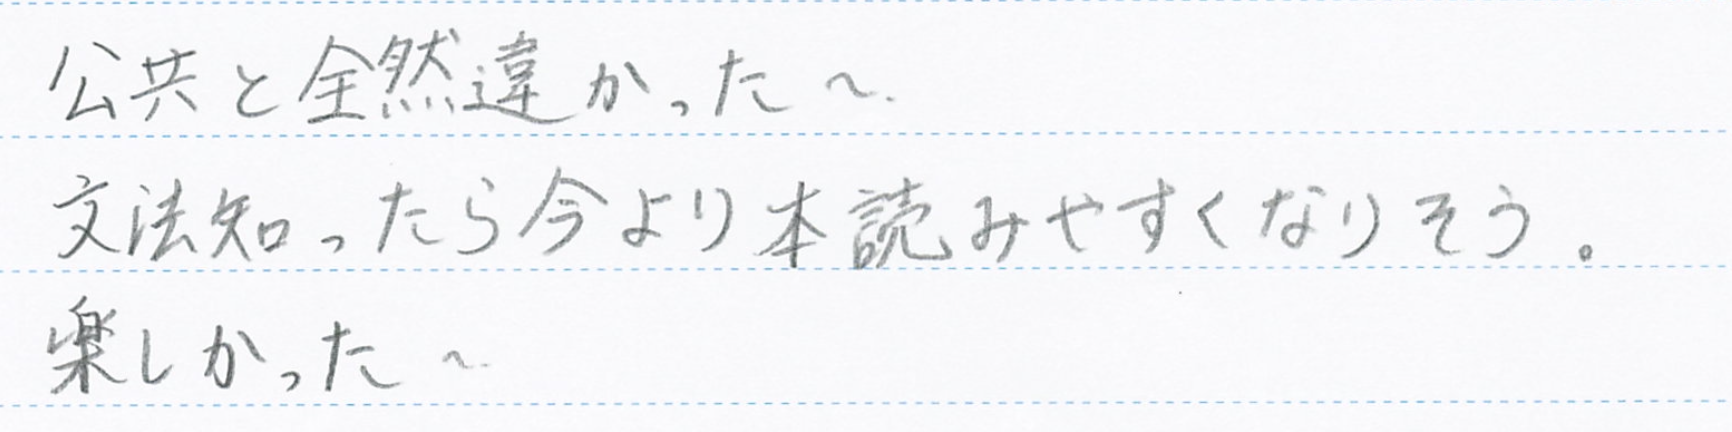 公共と全然違かった〜.
文法知ったら今より本読みやすくなりそう。
楽しかった〜